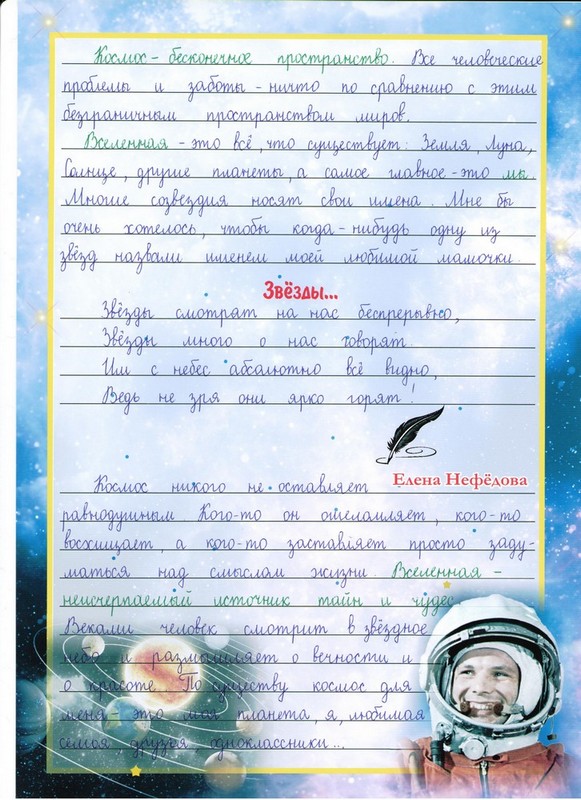 Космос - бесконечное пространство. Все человеческие
проблемы и заботы - ничто по сравнению с этим
безграничным пространством миров.
Вселенная - это всё, что существует: Земля, Луна,
Солнце, другие планеты, а самое главное - это мы.
Многие созвездия носят свои имена. Мне бы
очень хотелось, чтобы когда-нибудь одну из
звёзд назвали именем моей любимой мамочки.
Звёзды...
Звёзды смотрят на нас беспрерывно,
Звёзды много о нас говорят.
Им с небес абсалютно всё видно,
Ведь не зря они ярко горят!
Елена Нефёдова
Космос никого не оставляет
равнодушным Кого-то он ошеламляет, кого-то
восхищает, а кого-то заставляет просто заду-
маться над смыслам жизни. Вселенная -
неисчерпаемый источник тайн и чудес.
Веками человек смотрит в звёздное
небо и размышляет о вечности и
о красоте. По существу космос для
меня - это моя планета, я, любимая
семья друзья, одноклассники...